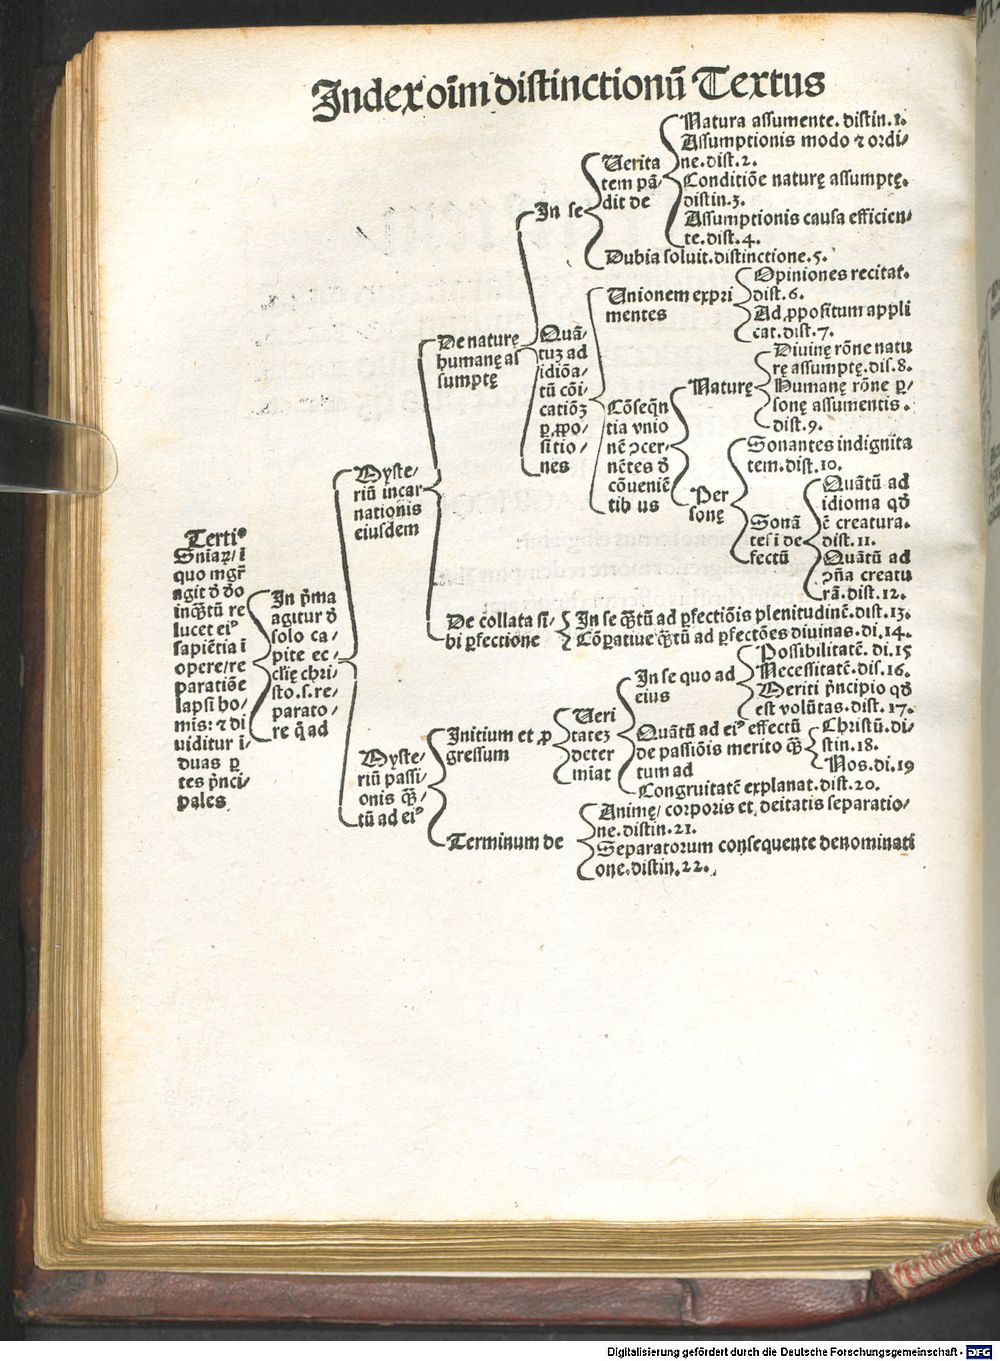 Index oīm distinctionū Textus
Tertiꝰ
Sniaꝝ/ ī
quo mgr̄
agit ꝺ ꝺo
inq̄ꝫtū re
lucet eiꝰ
sapiētia ī
opere/re
paratiōe
lapsi ho-
mīs: ⁊ di
uiditur ī-
duas ꝑ
tes p̄nci-
pales
In p̄ma
agitur ꝺ
solo ca-
pite ec-
clīę chri-
sto.ſ.re-
parato-
re q̄ ad
Myste-
riū incar
nationis
eiusdem
De naturę
humanę as
sumptę
In se
Verita
tem pā-
dit de
Natura assumente. distin.1.
Assumptionis modo ⁊ ordi-
ne.dist.2.
Conditiōe naturę assumptę.
distin.3.
Assumptionis causa efficien-
te.dist.4.
Dubia soluit.distinctione.5.
Quā-
tuꝫ ad
idiōa-
tū cōi-
catiōꝫ
ꝑ.ꝓpo-
sitio-
nes
Unionem expri
mentes
Opiniones recitat.
dist.6.
Ad ꝓpositum appli
cat.dist.7.
Cōseq̄n
tia vnio
nē ↄcer-
nētes ꝺ
cōueniē
tibus
Naturę
Diuinę rōne natu
rę assumptę.dis.8.
Humanę rōne ꝑ-
sonę assumentis.
dist.9.
Per
sonę
Sonantes indignita
tem.dist.10.
Sonā
tes ī de-
fectū
Quātū ad
idioma qꝺ
ē creatura.
dist.11.
Quātū ad
ↄn̄a creatu
rā.dist.12.
De collata si-
bi ꝑfectione
In se q̄ꝫtū ad ꝑfectiōis plenitudinē.dist.13.
Cōꝑatiue q̄ꝫtū ad ꝑfectōes diuinas.di.14.
Myste-
riū passi-
onis q̄ꝫ-
tū ad eiꝰ
Initium et ꝓ
gressum
Veri
tateꝫ
deter
miat
In se quo ad
eius
Possibilitatē.di.15
Necessitatē.dis.16.
Meriti p̄ncipio qꝺ
est volūtas.dist.17.
Quātū ad eiꝰ effectū
de passiōis merito q̄ꝫ
tum ad
Christū.di-
stin.18.
Nos.di.19
Congruitatē explanat.dist.20.
Terminum de
Animę/ corporis et deitatis separatio-
ne.distin.21.
Separatorum consequente denominati
one.distin.22.
Digitalisierung gefördert durch die Deutsche Forschungsgemeinschaft - DFG